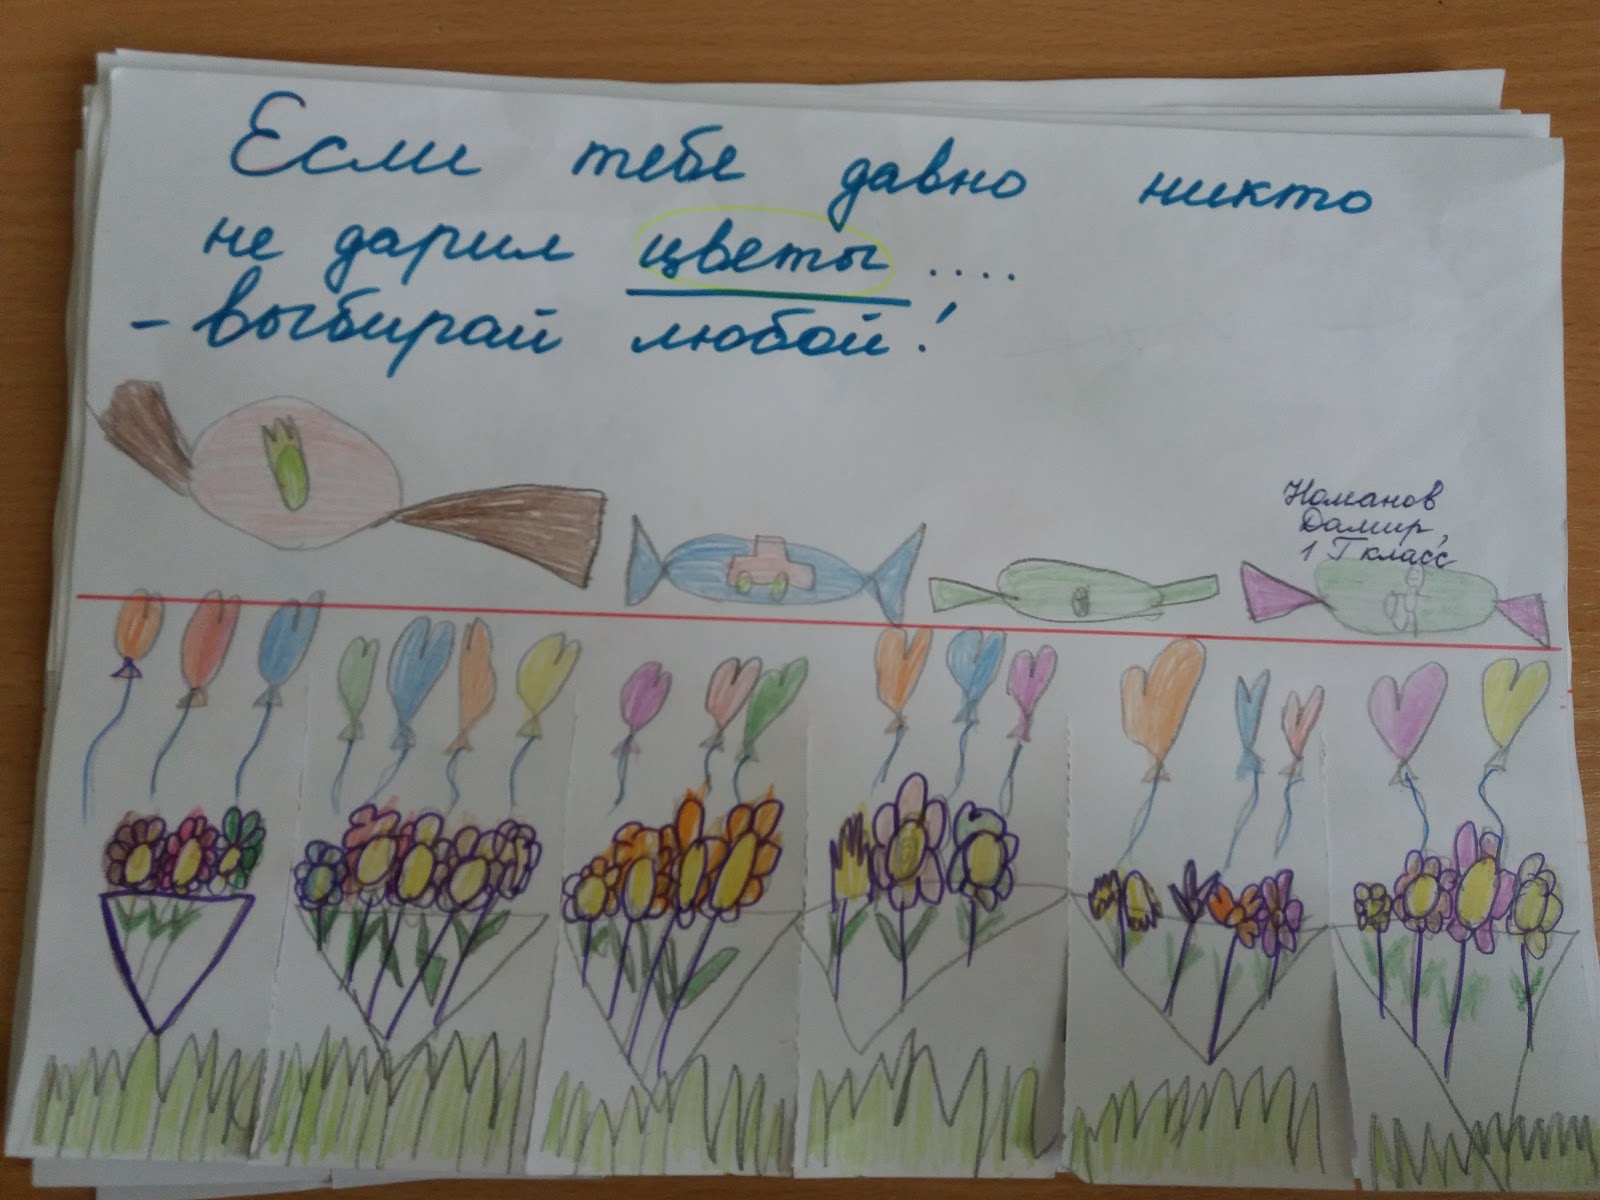 Если тебе давно никто
не дарил цветы ....
- выбирай любой!
Номанов
Дамир,
1 Г класс